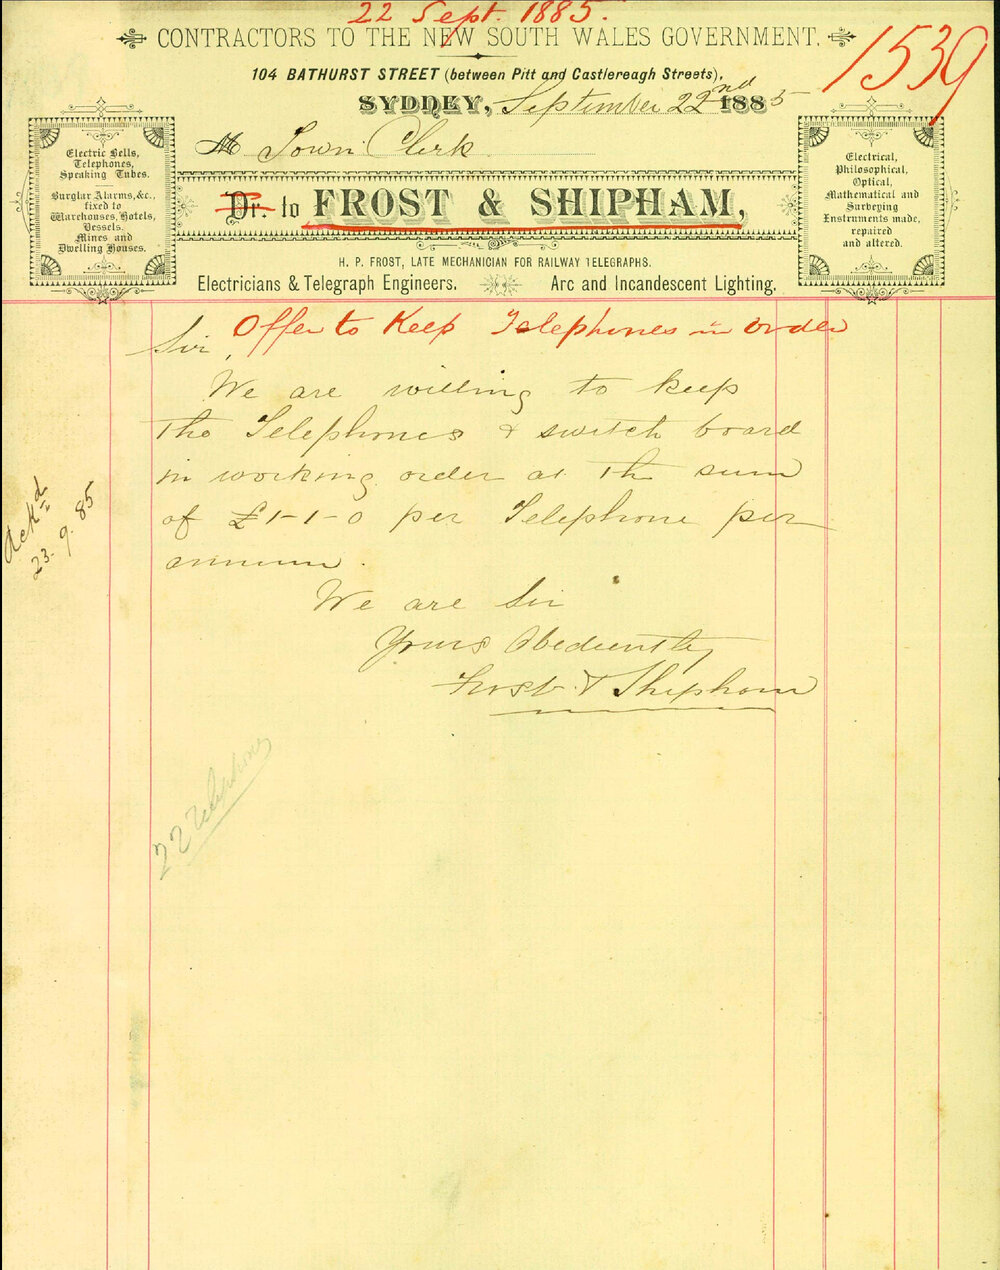 22 Sept. 1885.
CONTRACTORS TO THE NEW SOUTH WALES GOVERNMENT.
1539
104 BATHURST STREET (between Pitt and Castlereagh Streets),
SYDNEY, September 22nd 1885
M Town Clerk
Dr. to FROST & SHIPHAM,
H. P. FROST, LATE MECHANICIAN FOR RAILWAY TELEGRAPHS.
Electricians & Telegraph Engineers. Arc and Incandescent Lighting.
Electric Bells,
Telephones,
Speaking Tubes.
Burglar Alarms, &c.,
fixed to
Warehouses, Hotels,
Vessels.
Mines and
Dwelling Houses.
Electrical,
Philosophical,
Optical,
Mathematical and
Surveying
Instruments made,
repaired
and altered.
Offer to Keep Telephones in order
Sir,
We are willing to keep
the Telephones & switch board
in working order at the sum
of £1-1-0 per Telephone per
annum.
We are Sir
Yours Obediently
Frost & Shipham
Ackd
23.9.85
22 Telephones